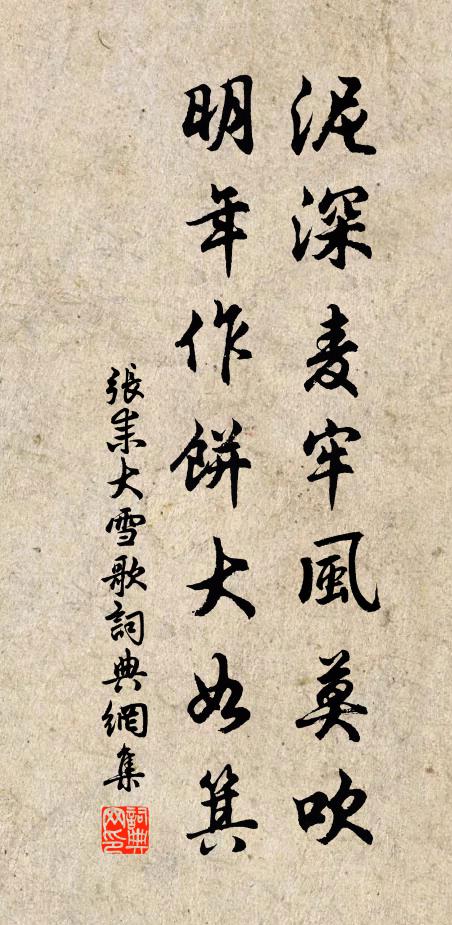 泥深麦牢風莫吹
明年作餅大如箕
張耒大雪歌詞典網集
詞典网印